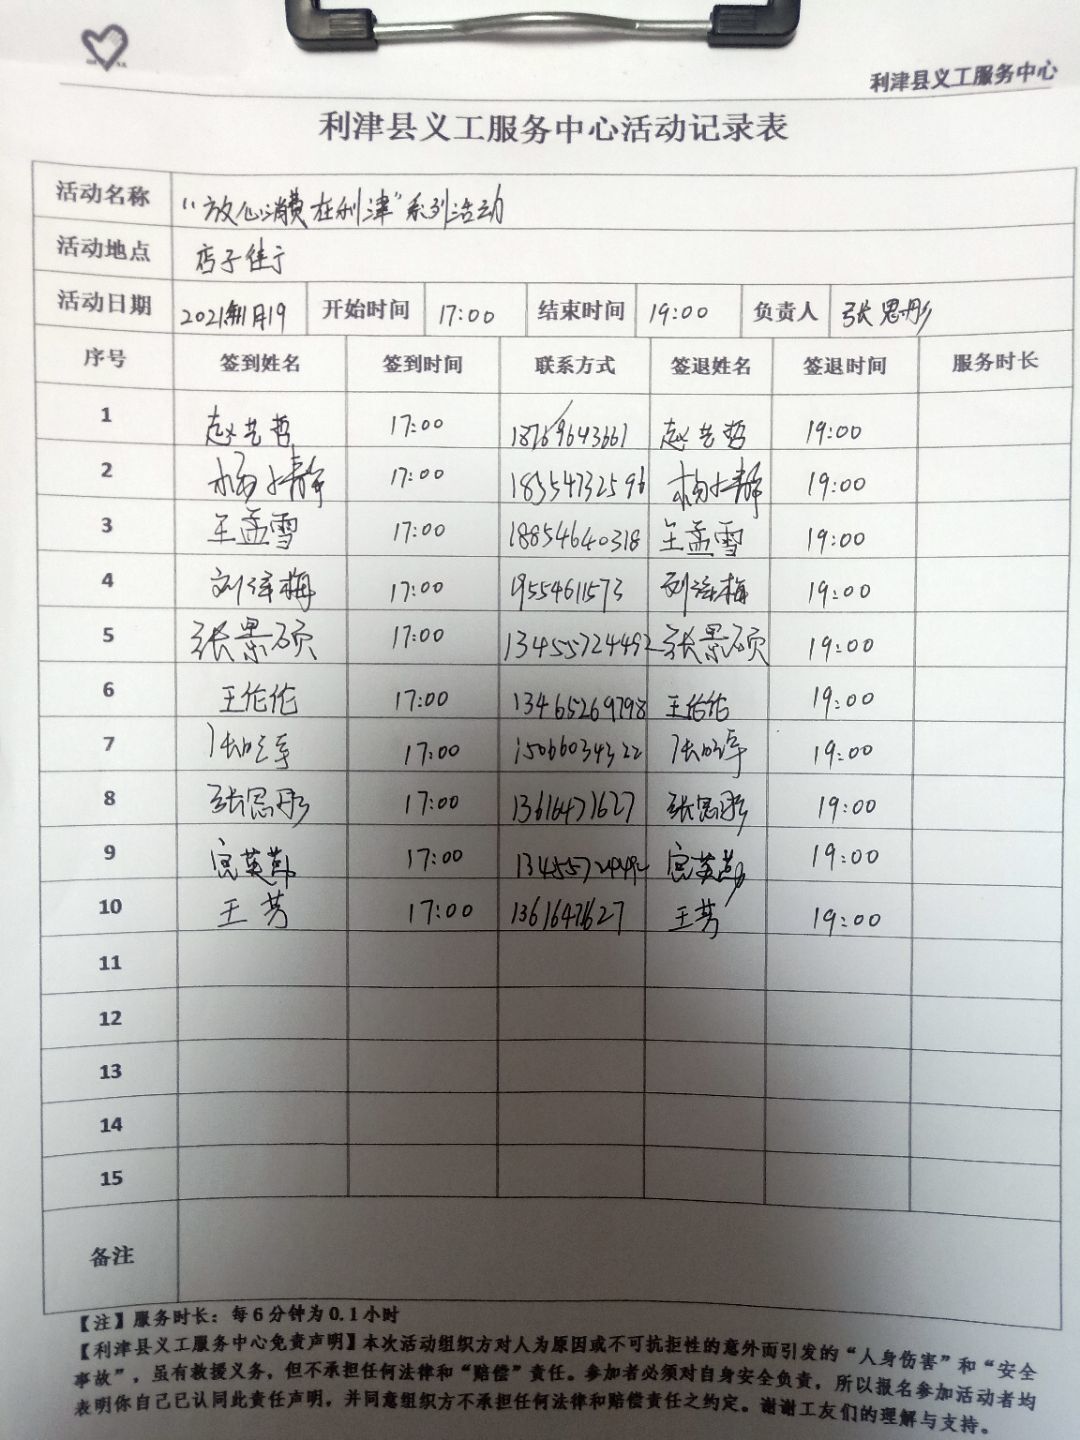 利津县义工服务中心
利津县义工服务中心活动记录表
活动名称 “放心消费在利津”系列活动
活动地点 店子街
活动日期 2021年11月19 开始时间 17:00 结束时间 19:00 负责人 张思彤
序号 签到姓名 签到时间 联系方式 签退姓名 签退时间 服务时长
1 赵艺哲 17:00 18769643661 赵艺哲 19:00
2 杨婧 17:00 18554732596 杨婧 19:00
3 王孟雪 17:00 18854640318 王孟雪 19:00
4 刘 梅 17:00 1955461573 刘 梅 19:00
5 张景硕 17:00 13455724492 张景硕 19:00
6 王伦伦 17:00 13465269798 王伦伦 19:00
7 张 17:00 15066034322 张 19:00
8 张思彤 17:00 13616471627 张思彤 19:00
9 宫英勤 17:00 13455724492 宫英勤 19:00
10 王芳 17:00 13616471627 王芳 19:00
11
12
13
14
15
备注
【注】服务时长：每6分钟为0.1小时
【利津县义工服务中心免责声明】本次活动组织方对人为原因或不可抗拒性的意外而引发的“人身伤害”和“安全
事故”，虽有救援义务，但不承担任何法律和“赔偿”责任。参加者必须对自身安全负责，所以报名参加活动者均
表明你自己已认同此责任声明，并同意组织方不承担任何法律和赔偿责任之约定。谢谢工友们的理解与支持。